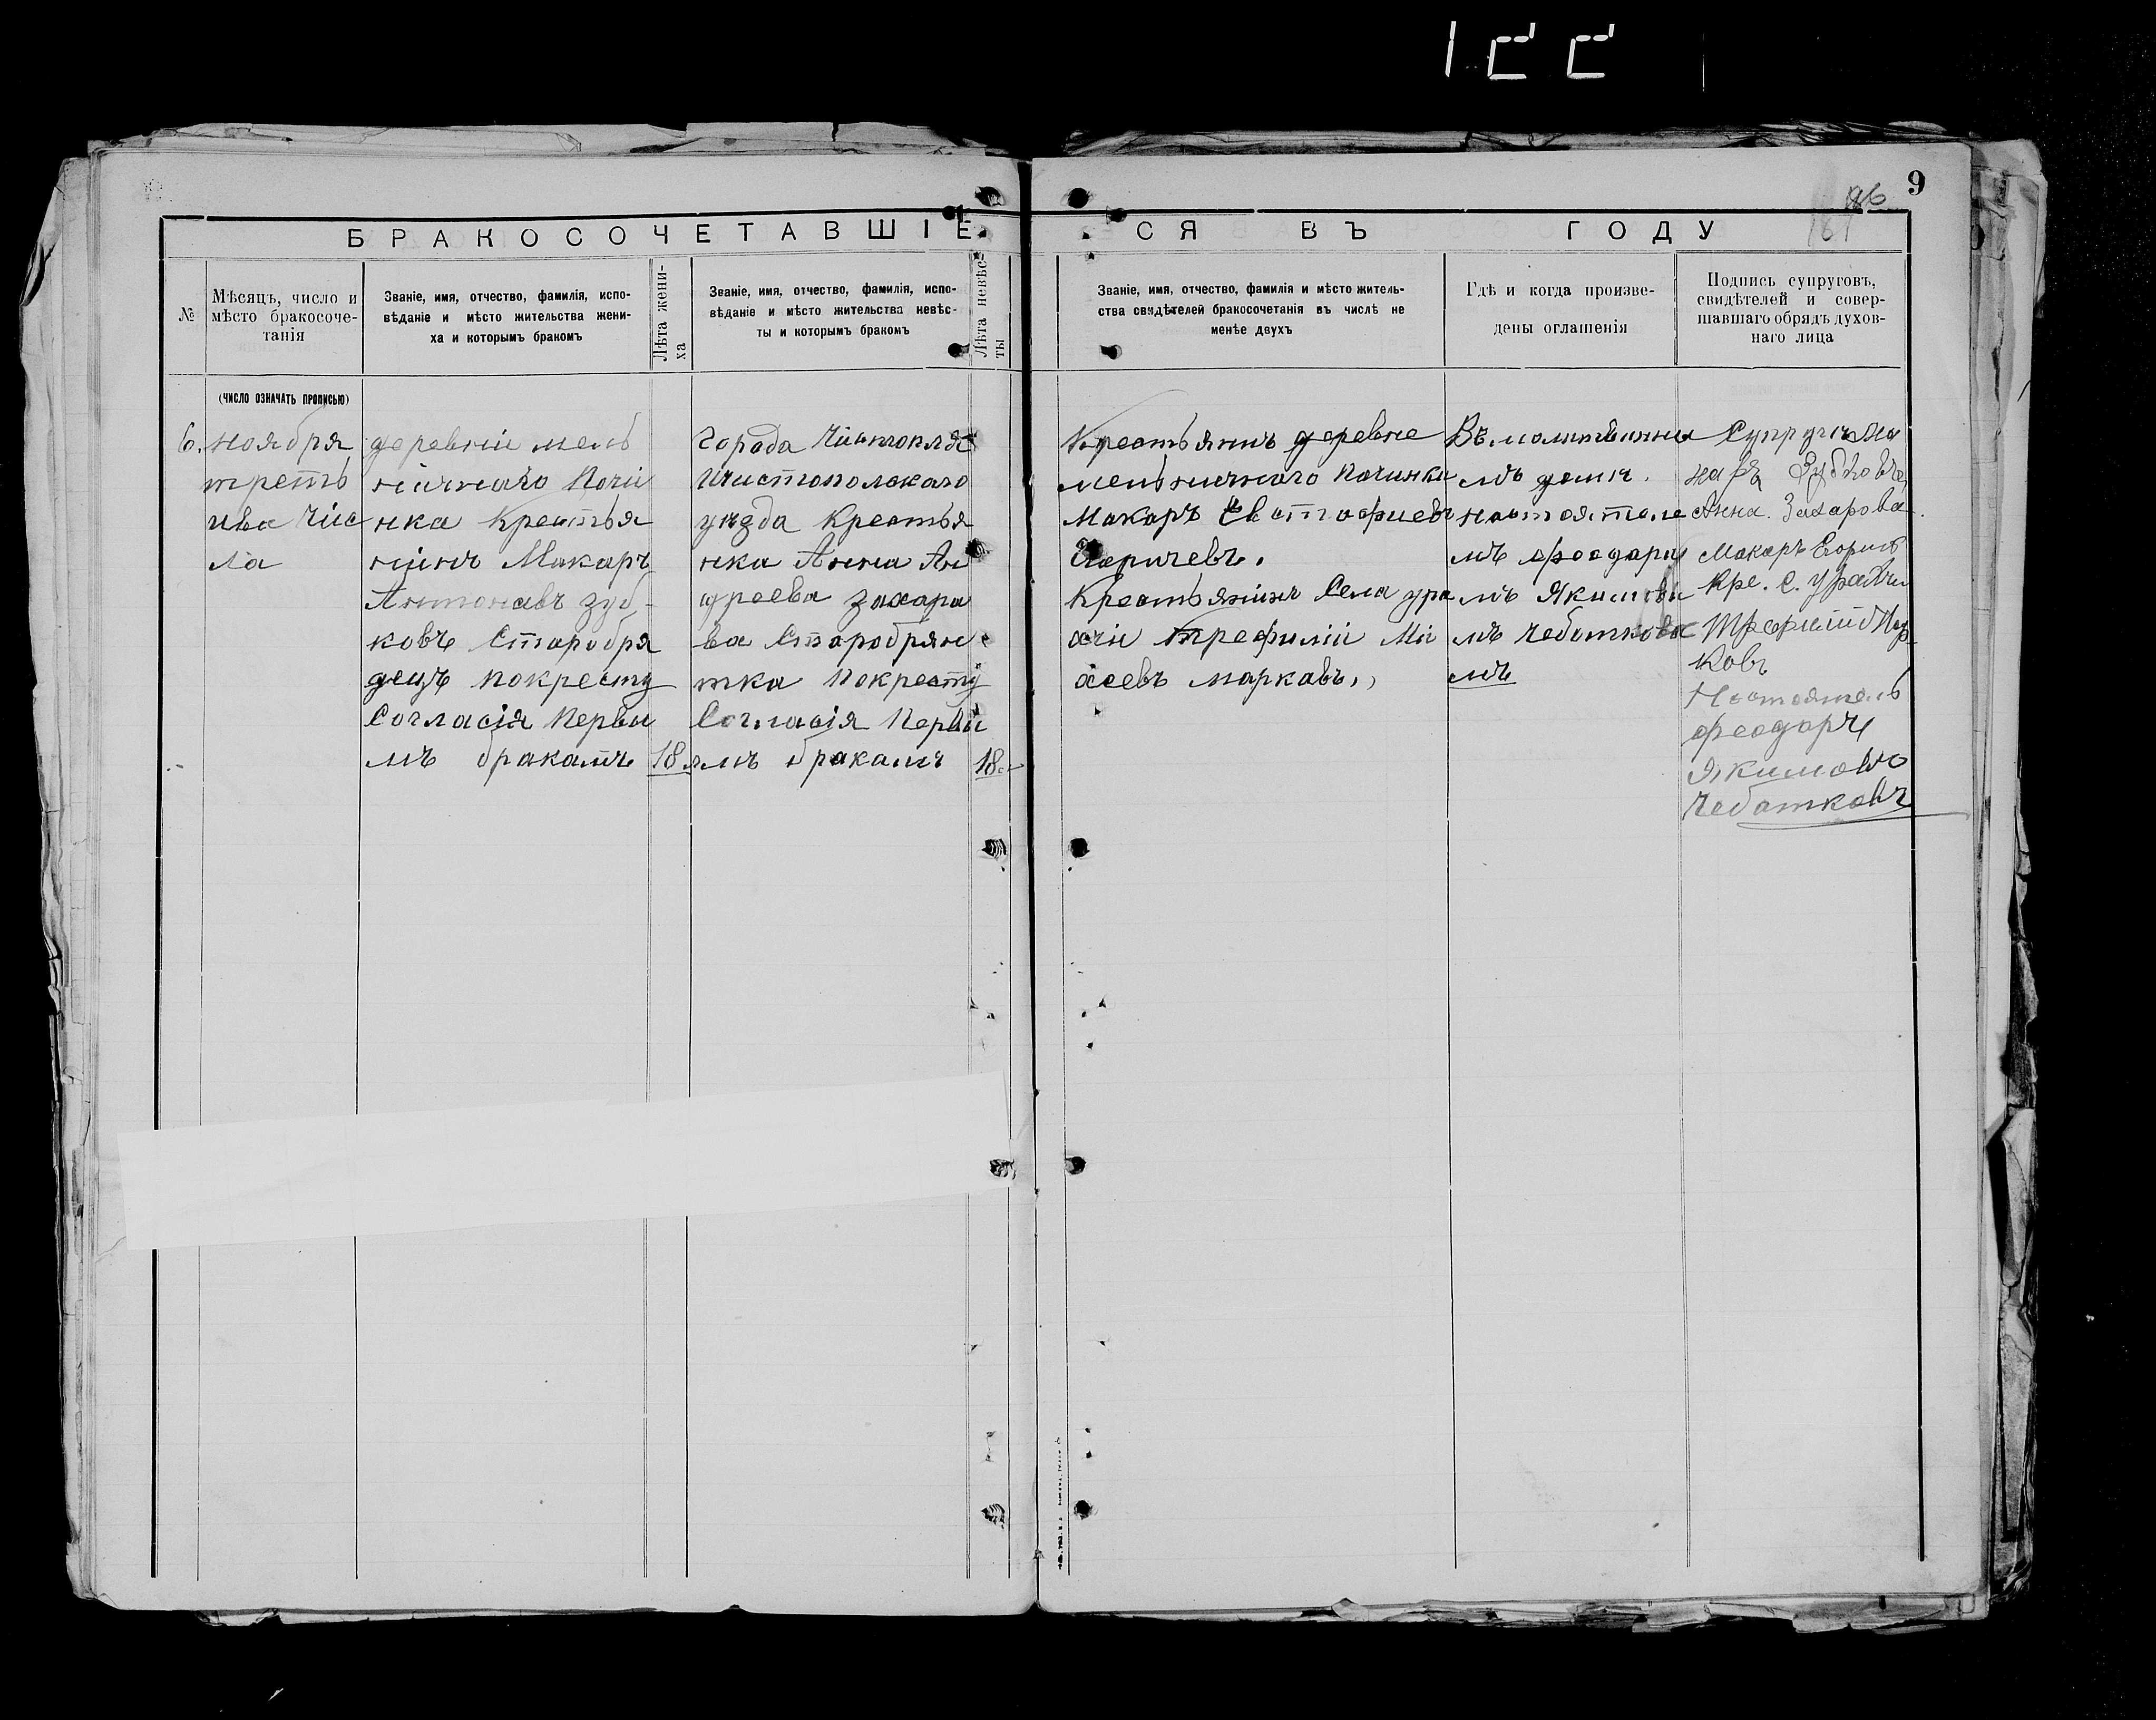 9
96
161
БРАКОСОЧЕТАВШІЕ
СЯ ВЪ ГОДУ
№
Мѣсяцъ, число и
мѣсто бракосоче-
танія
Званіе, имя, отчество, фамилія, испо-
вѣданіе и мѣсто жительства жени-
ха и которымъ бракомъ
Лѣта жени-
ха
Званіе, имя, отчество, фамилія, испо-
вѣданіе и мѣсто жительства невѣс-
ты и которымъ бракомъ
Лѣта невѣс-
ты
Званіе, имя, отчество, фамилія и мѣсто житель-
ства свидѣтелей бракосочетанія въ числѣ не
менѣе двухъ
Гдѣ и когда произве-
дены оглашенія
Подпись супруговъ,
свидѣтелей и совер-
шавшаго обрядъ духов-
наго лица
(ЧИСЛО ОЗНАЧАТЬ ПРОПИСЬЮ)
6.
ноября
треть
ива чис
ла
деревніи мель
ничнаго Почи
нка Крестья
нинъ Макаръ
Антонавъ Зуб-
ковъ Старобря
децъ покресту
Согласія Первы
мъ бракамъ
18
города
Чистополскаго
уезда Крестья
нка Анна Ан
дреева Захаро
ва Старобряд
тка покресту
Согласія Первы
мъ бракамъ
18
Крестьянинъ деревне
мельничнаго починка
Макаръ Евстафиевъ
Егоричевъ.
Крестьянинъ Села ура
хчи Трефилій Ми
хеевъ марковъ,,
Въ молитвенны
мъ доми.
настоятеле
мъ феодары
мъ Якимовы
мъ Чеботковы
мъ
Супруги Ма
каръ Зубковъ
Анна. Захарова
Макаръ Егорич
Кре. С. Урахчи
Трефилій Мар
ковъ
Настоятель
феодаръ
Якимовъ
Чеботковъ